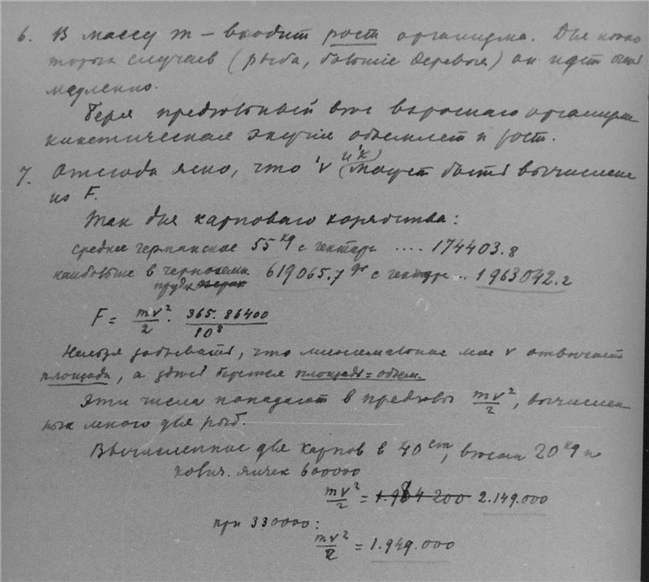 6. В массу m – входит рост организма. Для неко-
торых случаев (рыба, большие деревья) он идет очень
медленно.
Беря предельный вес взрослаго организма
кинетическая энергия объемлет и рост.
7. Отсюда ясно, что v (и k) может быть вычислена
из F.
Так для карповаго хозяйства:
среднее германское 55 kg с гектара .... 174403.8
наибольшее в чернозема 619065.7 gr с гектара .. 1963042.2
прудах
F = mv²/2 · 365.86400/10⁸
Нельзя забывать, что мое v отвечает
площади, а здесь берется площадь = объем
Эти числа попадают в пределы mv²/2, вычислен
ных мною для рыб.
Вычисленные для карпов в 40 cm, весом 20 kg и
колич. яичек 600000
mv²/2 = 1.984 200 2.149.000
при 330000:
mv²/2 = 1.949.000